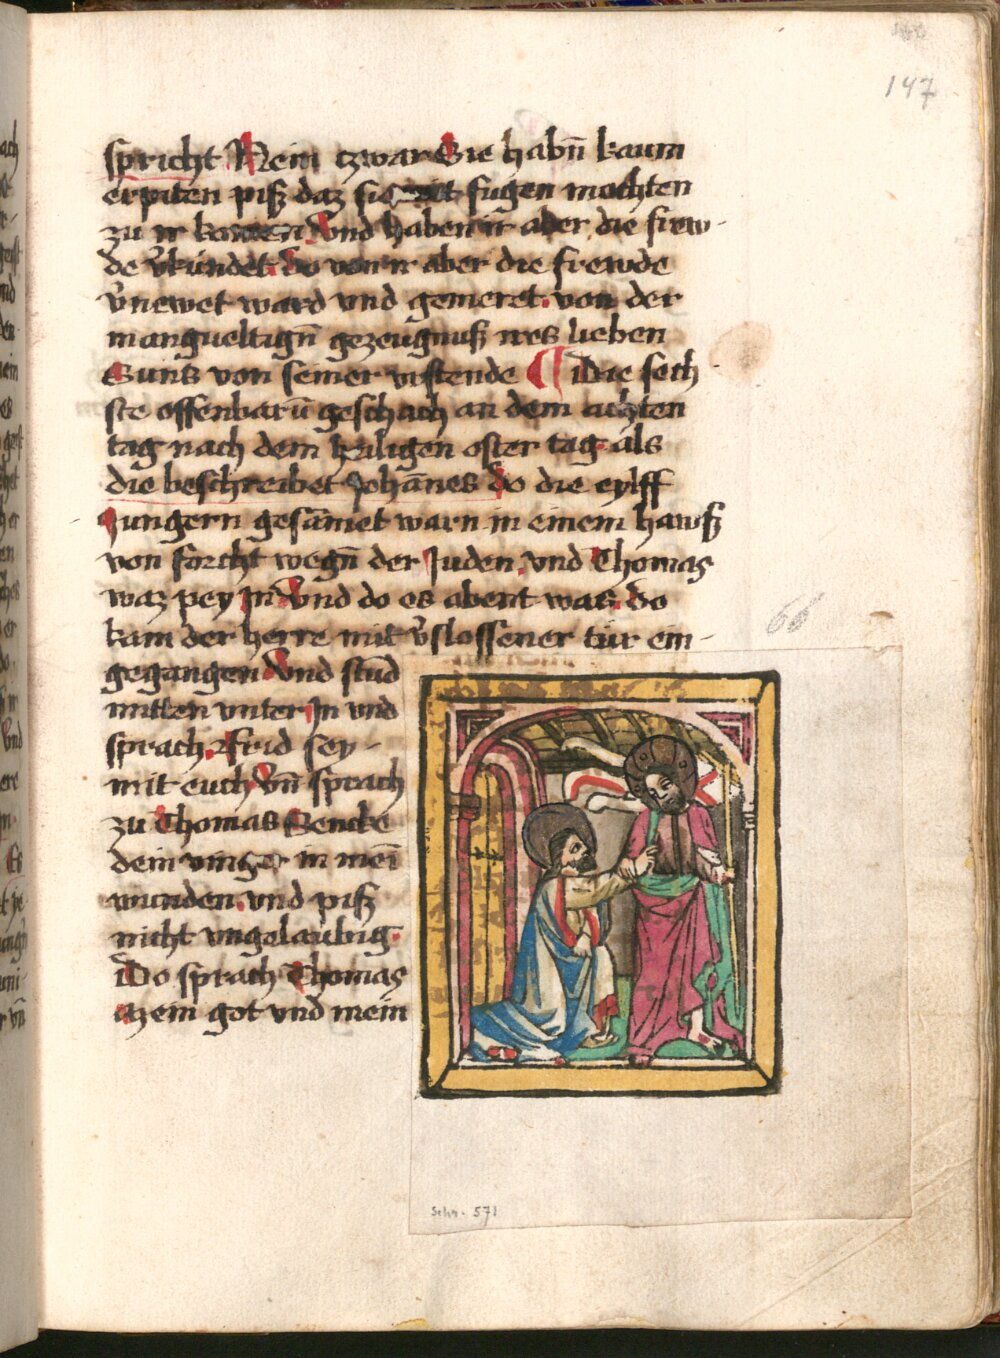 147
spricht Nein zwar Sie habn̄ kaum
erpiten piß daz sie mit fugen mochten
zu ir komen Vnd haben ir aber die frew-
de v̓kundet. Do von ir aber die frewde
v̓newet ward vnd gemeret. von der
mangueltign̄ gezeugnuß ires lieben
Suns von seiner vrstende ¶ Die sech
ste offenbarū geschach an dem achten
tag nach dem heiligen oster tag als
die beschreibet Johānes Do die eylff
Jungern gesāmet warn in einem hawß
von forcht wegn̄ der Juden. vnd Thomas
waz pey Jn Vnd do es abent was. do
kam der herre mit v̓slossener tür ein-
66
gegangen Vnd stūd
mitten vnter Jn vnd
sprach. frid sey-
mit euch Vn̄ sprach
zu Thomas Sencke
dein vinger in mei̅
wunden. vnd piß
nicht vngelaubig.
Do sprach Thomas
Mein got vnd mein
Schr. 571